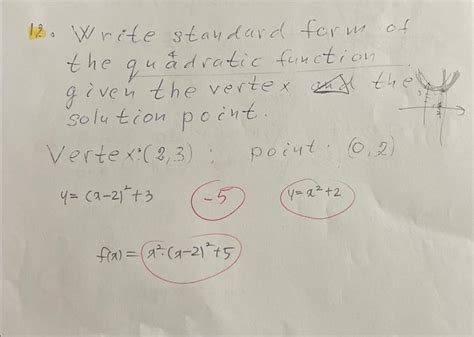 12. Write standard form of
the quadratic function
given the vertex and the
solution point.
Vertex: (2,3) ; point: (0,2)
y = (x-2)² + 3 -5 y = x² + 2
f(x) = x²·(x-2)² + 5